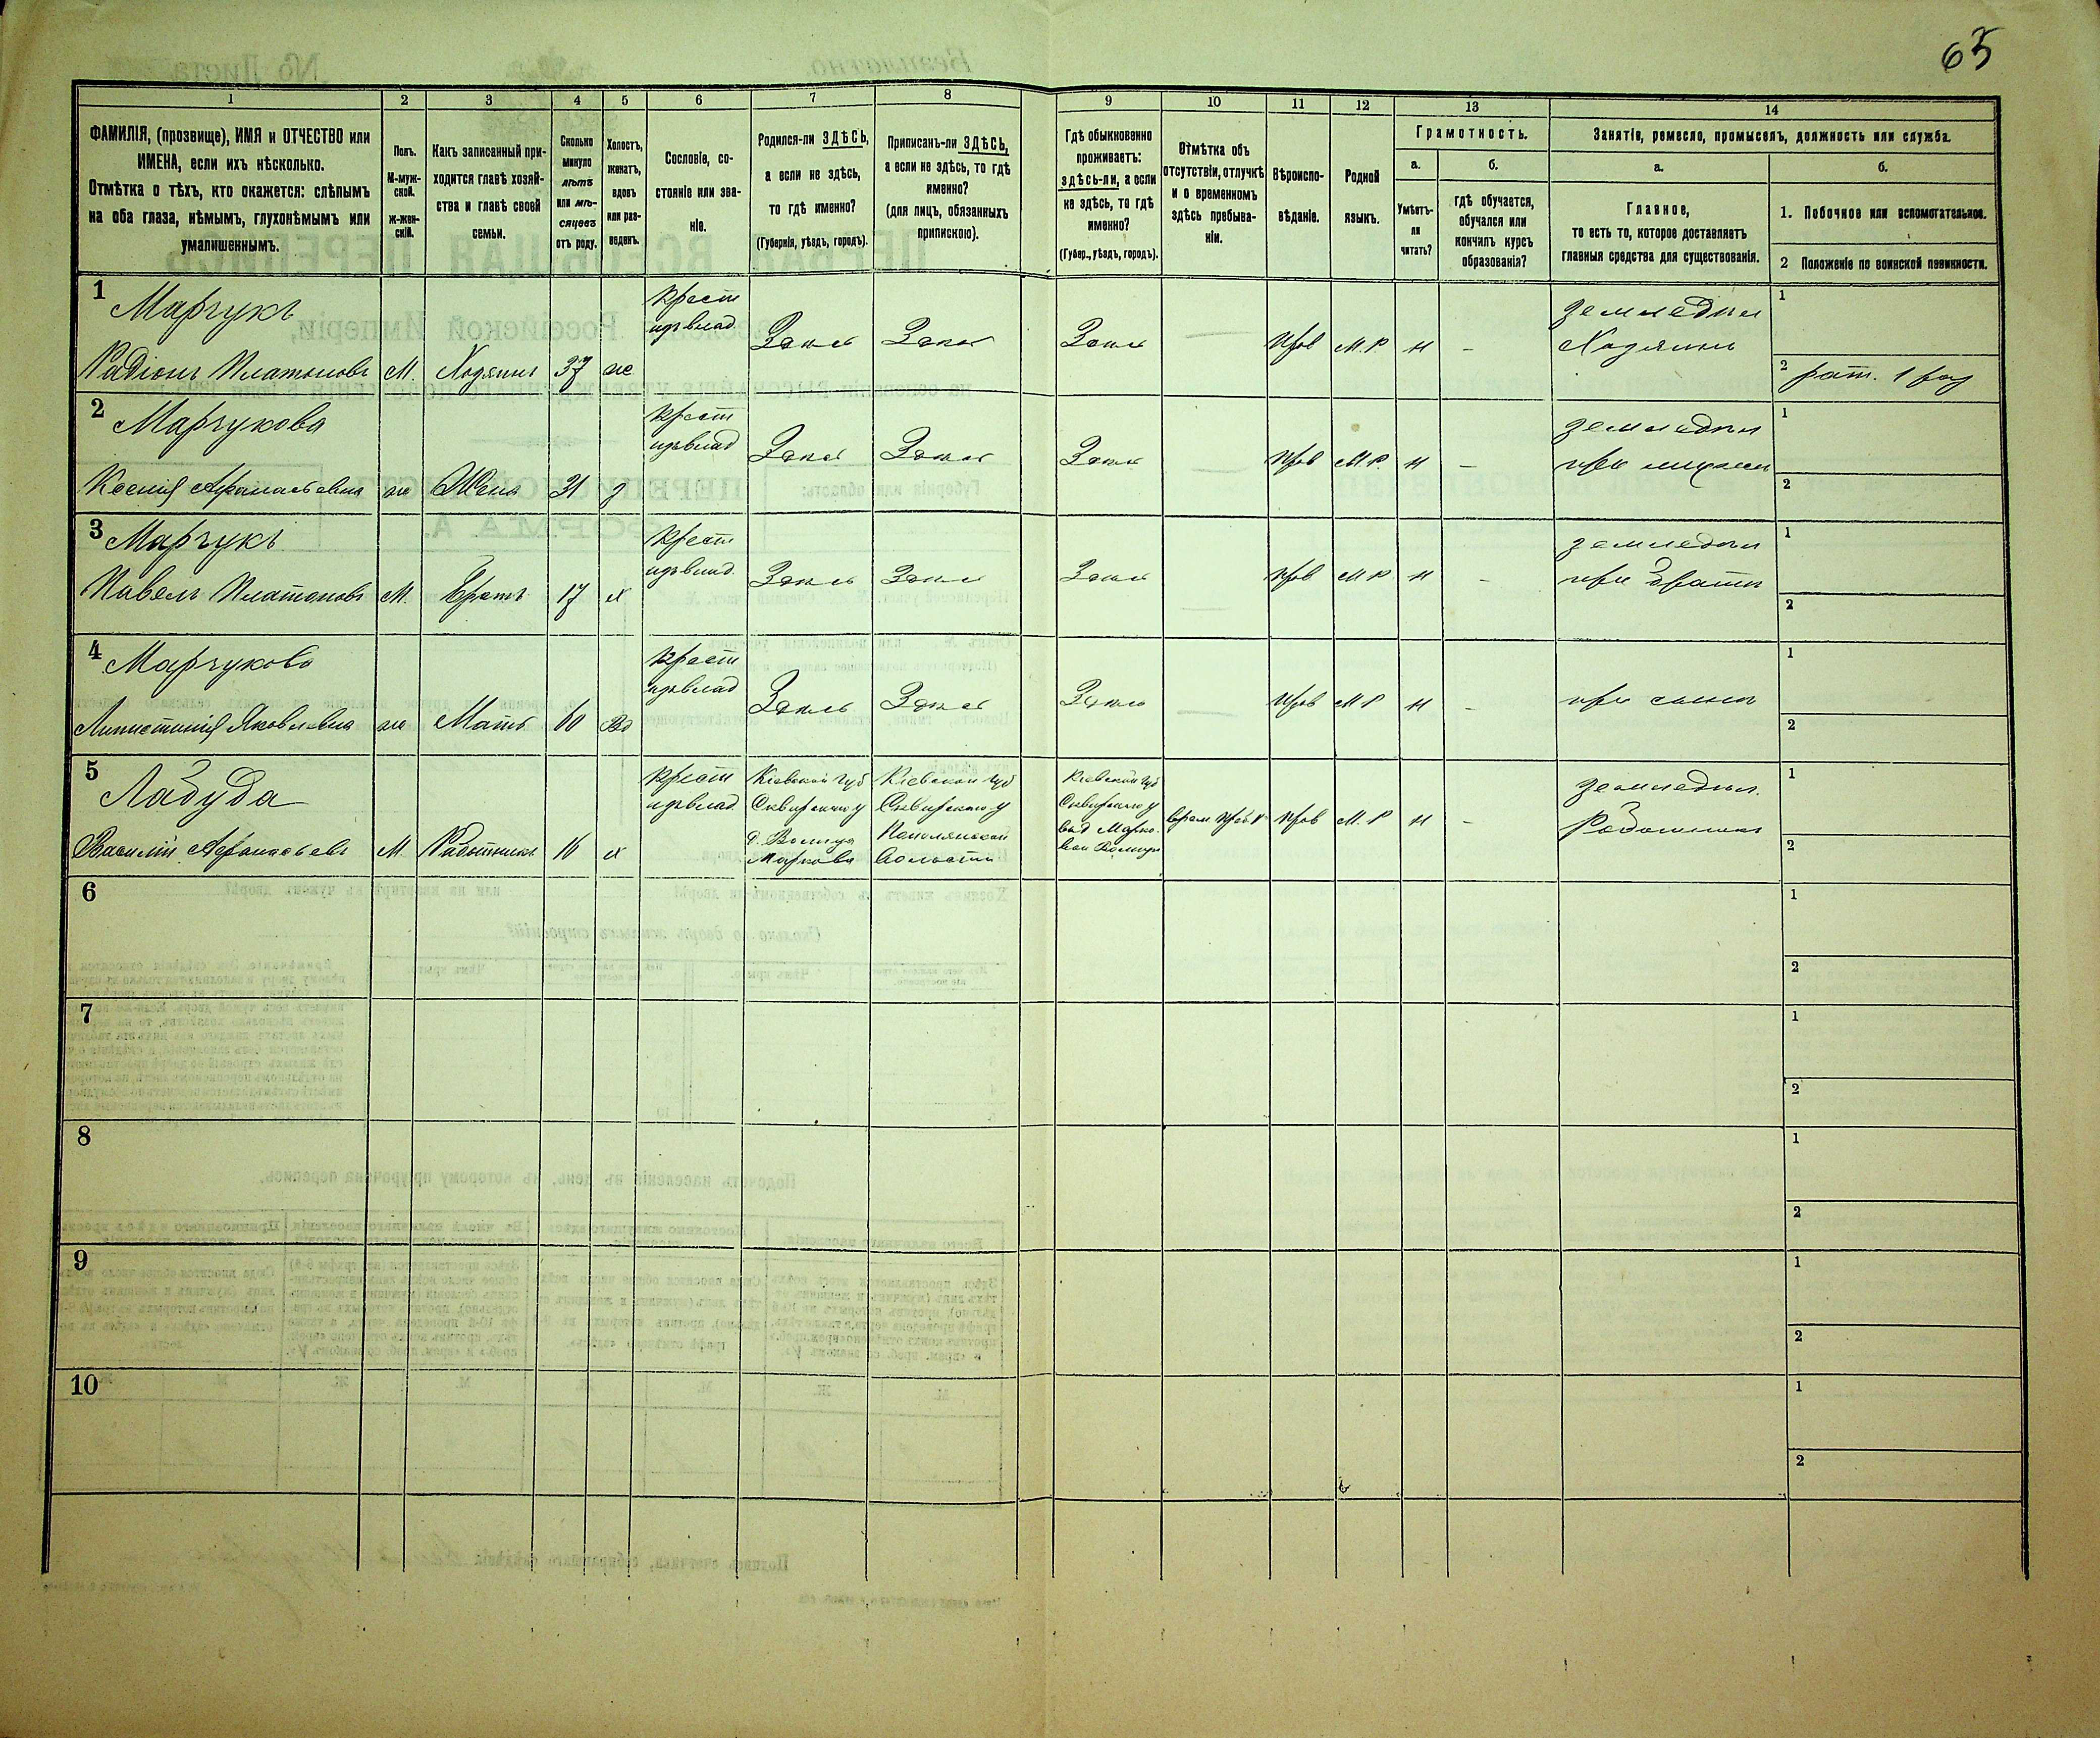 65
1
2
3
4
5
6
7
8
9
10
11
12
13
14
ФАМИЛІЯ, (прозвище), ИМЯ и ОТЧЕСТВО или
ИМЕНА, если ихъ нѣсколько.
Отмѣтка о тѣхъ, кто окажется: слѣпымъ
на оба глаза, нѣмымъ, глухонѣмымъ или
умалишеннымъ.
Полъ.
М-муж-
ской.
Ж-жен-
скій.
Какъ записанный при-
ходится главѣ хозяй-
ства и главѣ своей
семьи.
Сколько
минуло
лѣтъ
или мѣ-
сяцевъ
отъ роду.
Холостъ,
женатъ,
вдовъ
или раз-
веденъ.
Сословіе, со-
стояніе или зва-
ніе.
Родился-ли ЗДѢСЬ,
а если не здѣсь,
то гдѣ именно?
(Губернія, уѣздъ, городъ).
Приписанъ-ли ЗДѢСЬ,
а если не здѣсь, то гдѣ
именно?
(для лицъ, обязанныхъ
припискою).
Гдѣ обыкновенно
проживаетъ:
здѣсь-ли, а если
не здѣсь, то гдѣ
именно?
(Губер., уѣздъ, городъ).
Отмѣтка объ
отсутствіи, отлучкѣ
и о временномъ
здѣсь пребыва-
ніи.
Вѣроиспо-
вѣданіе.
Родной
языкъ.
Грамотность.
а.
б.
Умѣетъ-
ли
читать?
гдѣ обучается,
обучался или
кончилъ курсъ
образованія?
Занятіе, ремесло, промыселъ, должность или служба.
а.
б.
Главное,
то есть то, которое доставляетъ
главныя средства для существованія.
1. Побочное или вспомогательное.
2 Положеніе по воинской повинности.
1
Марчукъ
Радіонъ Платоновъ
М.
Хозяинъ
37
ж
Крест
изъ влад
Здѣсь
Здѣсь
Здѣсь
—
Прав
М. Р.
н
–
земледѣл
Хозяинъ
1
2
рат. 1 раз
2
Марчукова
Ксенія Афанасьевна
ж
Жена
31
з
Крест
изъ влад
Здѣсь
Здѣсь
Здѣсь
—
Прав
М. Р.
н
–
земледѣл
при мужѣ
1
2
3
Марчукъ
Павелъ Платоновъ
М.
Братъ
17
х
Крест
изъ влад.
Здѣсь
Здѣсь
Здѣсь
—
Прав
М Р
н
–
земледѣл
при братѣ
1
2
4
Марчукова
Яковлевна
ж
Мать
60
Вд
Крест
изъ влад
Здѣсь
Здѣсь
Здѣсь
—
Прав
М Р
н
–
при сынѣ
1
2
5
Лабуда
Василій Афанасьевъ
М
Работникъ
16
х
Крест
изъ влад.
Кіевской губ
Сквирскаго у
Кіевской губ
Сквирскаго у
волости
Кіевской губ
Сквирскаго у
врем преб.
Прав
М. Р
н
–
земледѣл.
Работникъ
1
2
6
1
2
7
1
2
8
1
2
9
1
2
10
1
2